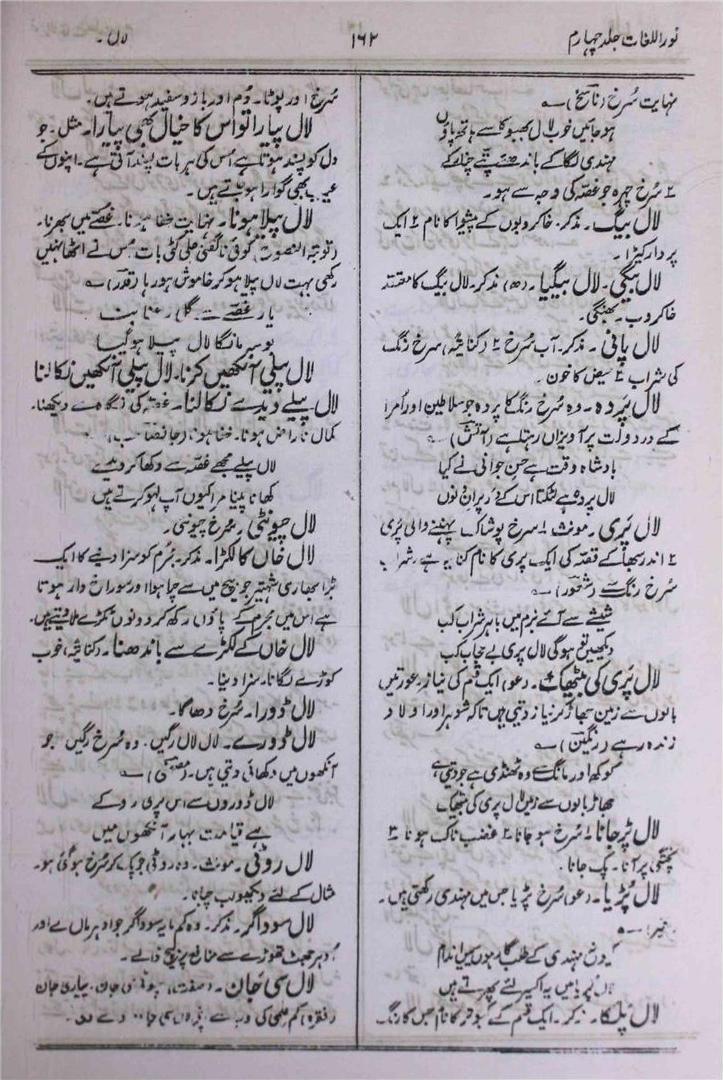 نور اللغات جلد چہارم
۱۶۲
لال۔
نہایت سُرخ (ناسخ) ؎
ہو جائیں خوب لال بھبوکا سے ہاتھ پاؤں
مہندی لگا کے باندھئے پتے چنار کے
۲ سُرخ چہرہ جو غصّہ کی وجہ سے ہو۔
لال بیگ۔ مذکر۔ خاکروبوں کے پیشوا کا نام ۲ ایک
پردار کیڑا۔
لال بیگی۔ لال بیگیا۔ (ھ) مذکر۔ لال بیگ کا معتقد
خاکروب۔ بھنگی۔
لال پانی۔ مذکر۔ آب سُرخ ۲ (کنایۃً) سرخ رنگ
کی شراب ۳ حیض کا خون۔
لال پردہ۔ وہ سُرخ رنگ کا پردہ جو سلاطین اور اُمرا
کے در دولت پر آویزاں رہتا ہے (آتش) ؎
بادشاہ وقت ہے حسن جوانی نے کیا
لال پردہ ہے لٹکتا اس کے در پر ان دنوں
لال پری۔ مونث ۱ سرخ پوشاک پہننے والی پری
۲ اندر سبھا کے قصّہ کی ایک پری کا نام کنایہ ہے شراب
سرخ رنگ سے (شعور) ؎
شیشے سے آئے بزم میں باہر شراب کب
دیکھیں تو ہو گی لال پری بے حجاب کب
لال پری کی بیٹھک۔ (عو) ایک قسم کی نیاز۔ عورتیں
بالوں سے زمین جھاڑ کر نیاز دیتی ہیں تاکہ شوہر اور اولاد
زندہ رہے (رنگین) ؎
کوکھ اور مانگ سے وہ ٹھنڈی ہے جو دیتی ہے
جھاڑ بالوں سے زمیں لال پری کی بیٹھک
لال پڑ جانا ۱ سُرخ ہو جانا ۲ غضب ناک ہونا ۳
پختگی پر آنا۔ پک جانا۔
لال پڑیا۔ (عو) سُرخ پڑیا جس میں مہندی رکھتی ہیں۔
مہندی کے طلبگار ہوں سیم اندام
لال پڑیا میں یہ اکسیر لئے پھرتے ہیں
لال پلکا۔ مذکر۔ ایک قسم کے کبوتر کا نام جس کا رنگ
سُرخ اور پوٹا۔ دُم اور بازو سفید ہوتے ہیں۔
لال پیارا تو اس کا خیال بھی پیارا۔ مثل۔ جو
دل کو پسند ہوتا ہے اُس کی ہر بات پسند آتی ہے۔ اپنوں کے
عیب بھی گوارا ہوتے ہیں۔
لال پیلا ہونا۔ نہایت خفا ہونا۔ غصّے میں بھرنا۔
(توبۃ النصوح) کوئی ناگفتنی جلی کٹی بات میں نے اٹھا نہیں
رکھی بہت لال پیلا ہو کر خاموش ہو رہا (قدر) ؎
یار غصے سے
بوسہ مانگا لال پیلا ہو گیا
لال پیلی آنکھیں کرنا۔ لال پیلی آنکھیں نکالنا
لال پیلے دیدے نکالنا۔ غصّہ کی نگاہ سے دیکھنا۔
کمال ناراض ہونا۔ خفا ہونا (جانصاحب) ؎
لال پیلے مجھے غصّہ سے دکھا کر دیدے
کھانا پینا مرا کیوں آپ لہو کرتے ہیں
لال چیونٹی۔ سرخ چیونٹی۔
لال خاں کا لکڑا۔ مذکر۔ مجرم کو سزا دینے کا ایک
بڑا بھاری شہتیر جو بیچ میں سے چرا ہوا اور سوراخ دار ہوتا
ہے اس میں مجرم کے پاؤں رکھ کر دونوں ٹکڑے ملا دیتے ہیں۔
لال خاں کے لکڑے سے باندھنا۔ (کنایۃً) خوب
کوڑے لگانا۔ سزا دینا۔
لال ڈورا۔ سُرخ دھاگا۔
لال ڈورے۔ لال لال رگیں۔ وہ سُرخ رگیں جو
آنکھوں میں دکھائی دیتی ہیں۔ (مصحفی) ؎
لال ڈوروں سے اس پری رو کے
ہے قیامت بہار آنکھوں میں
لال روٹی۔ مونث۔ وہ روٹی جو پک کر سُرخ ہو گئی ہو۔
مثال کے لئے دیکھو لب چانا۔
لال سوداگر۔ مذکر۔ وہ کم مایہ سوداگر جو ادھر مال لے اور
اُدھر جھٹ تھوڑے سے منافع پر بیچ ڈالے۔
لال سی جان۔ (صفت) پیاری جان
(فقرہ) کم علمی کی وجہ سے